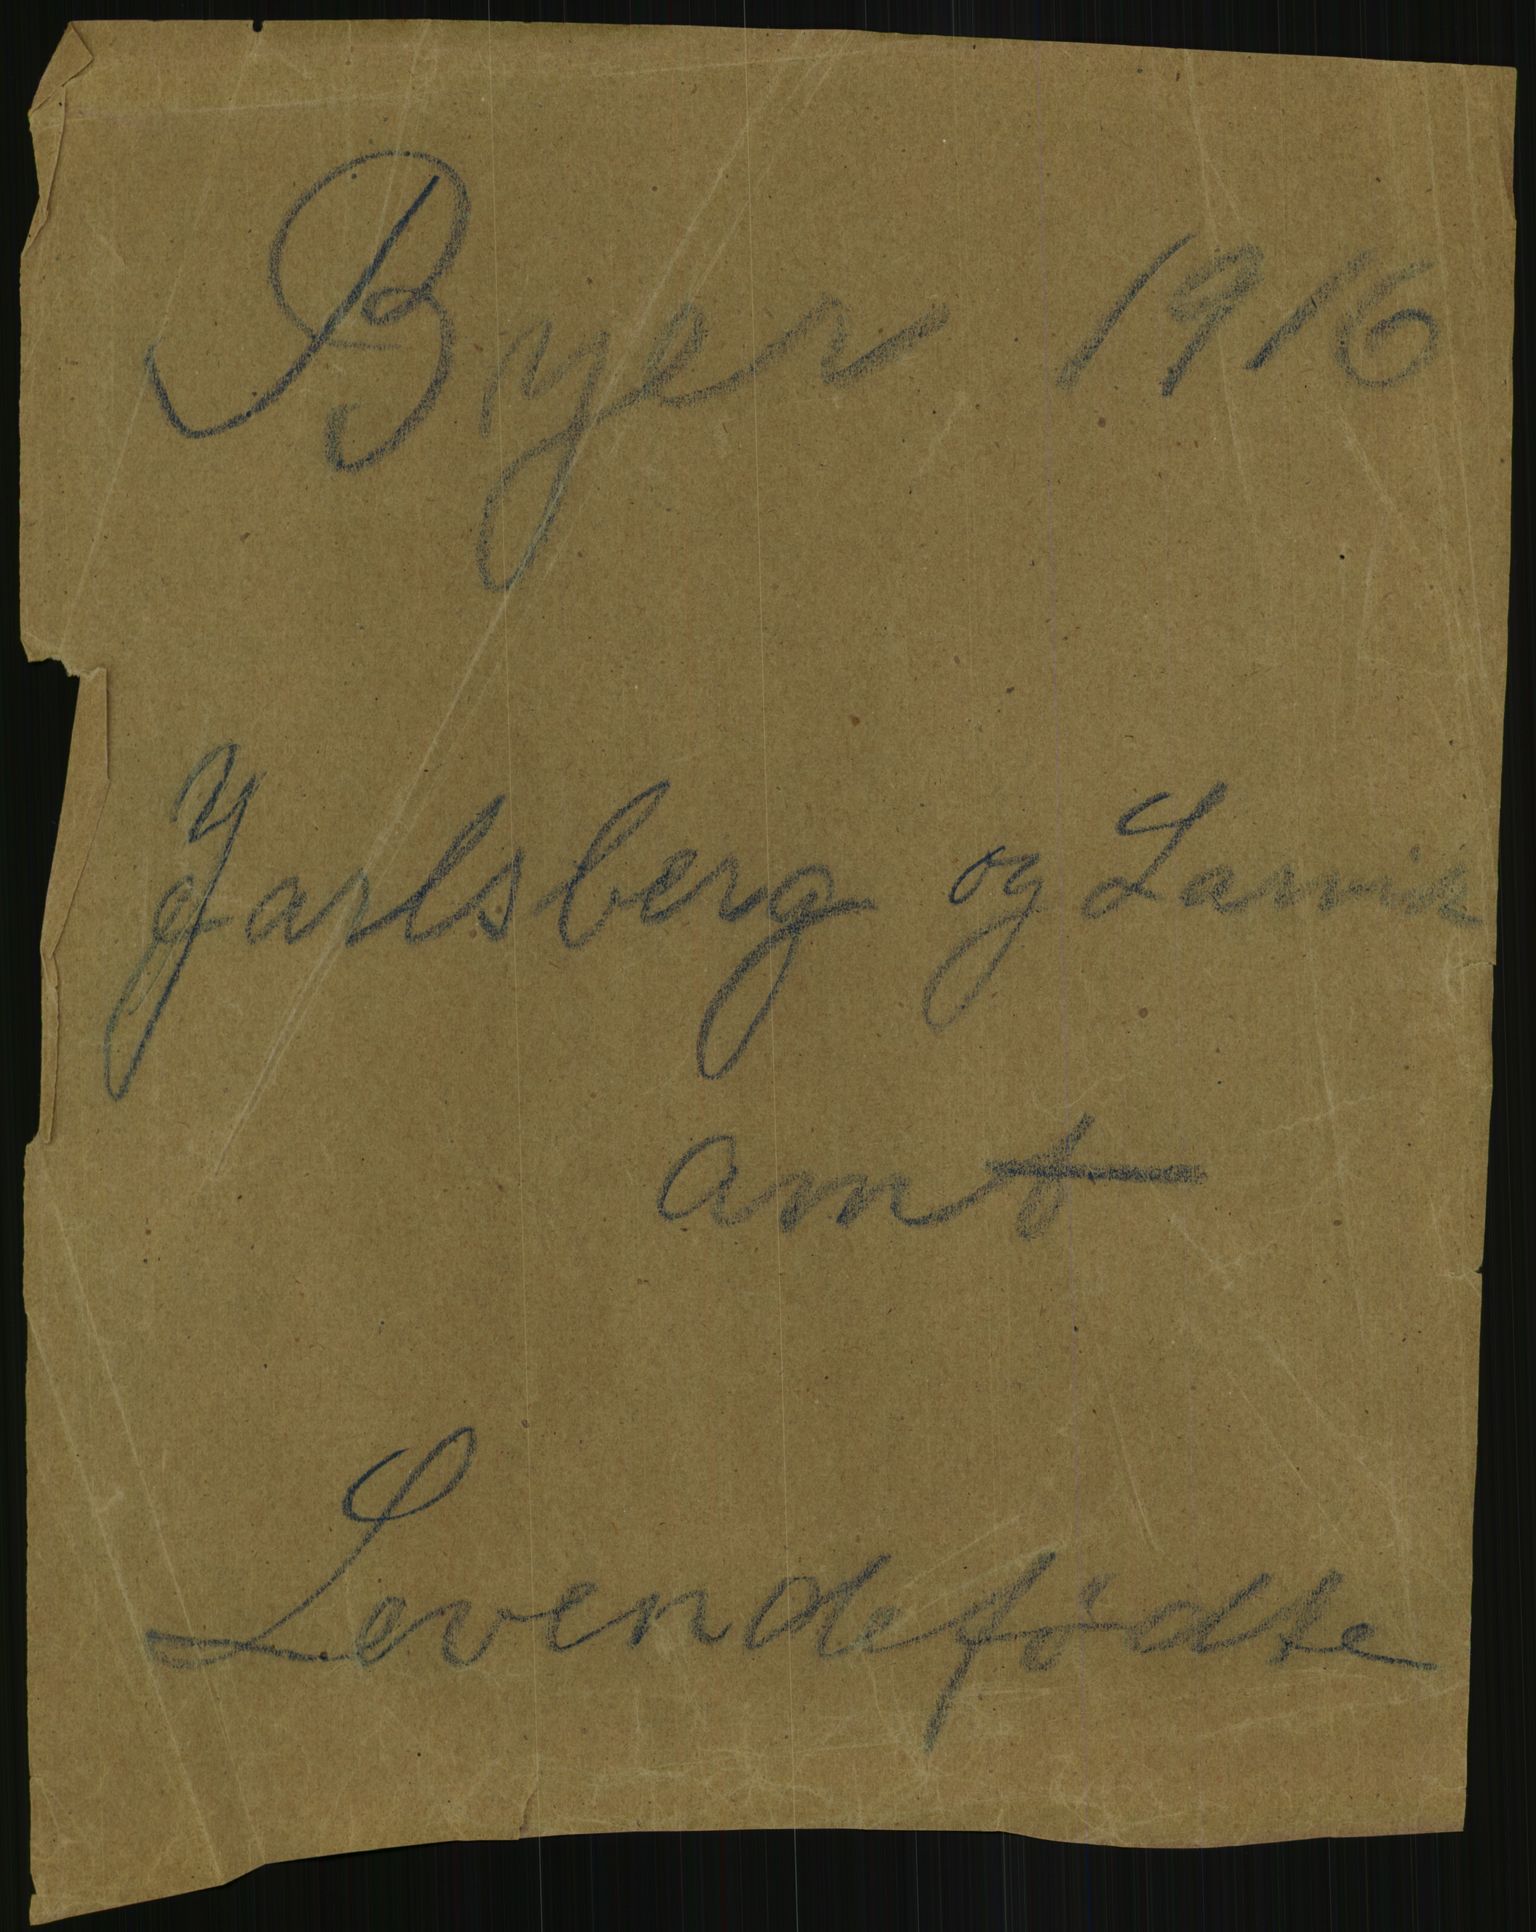 Byer 1916
Jarlsberg og Larvik
amt
Levendefødte